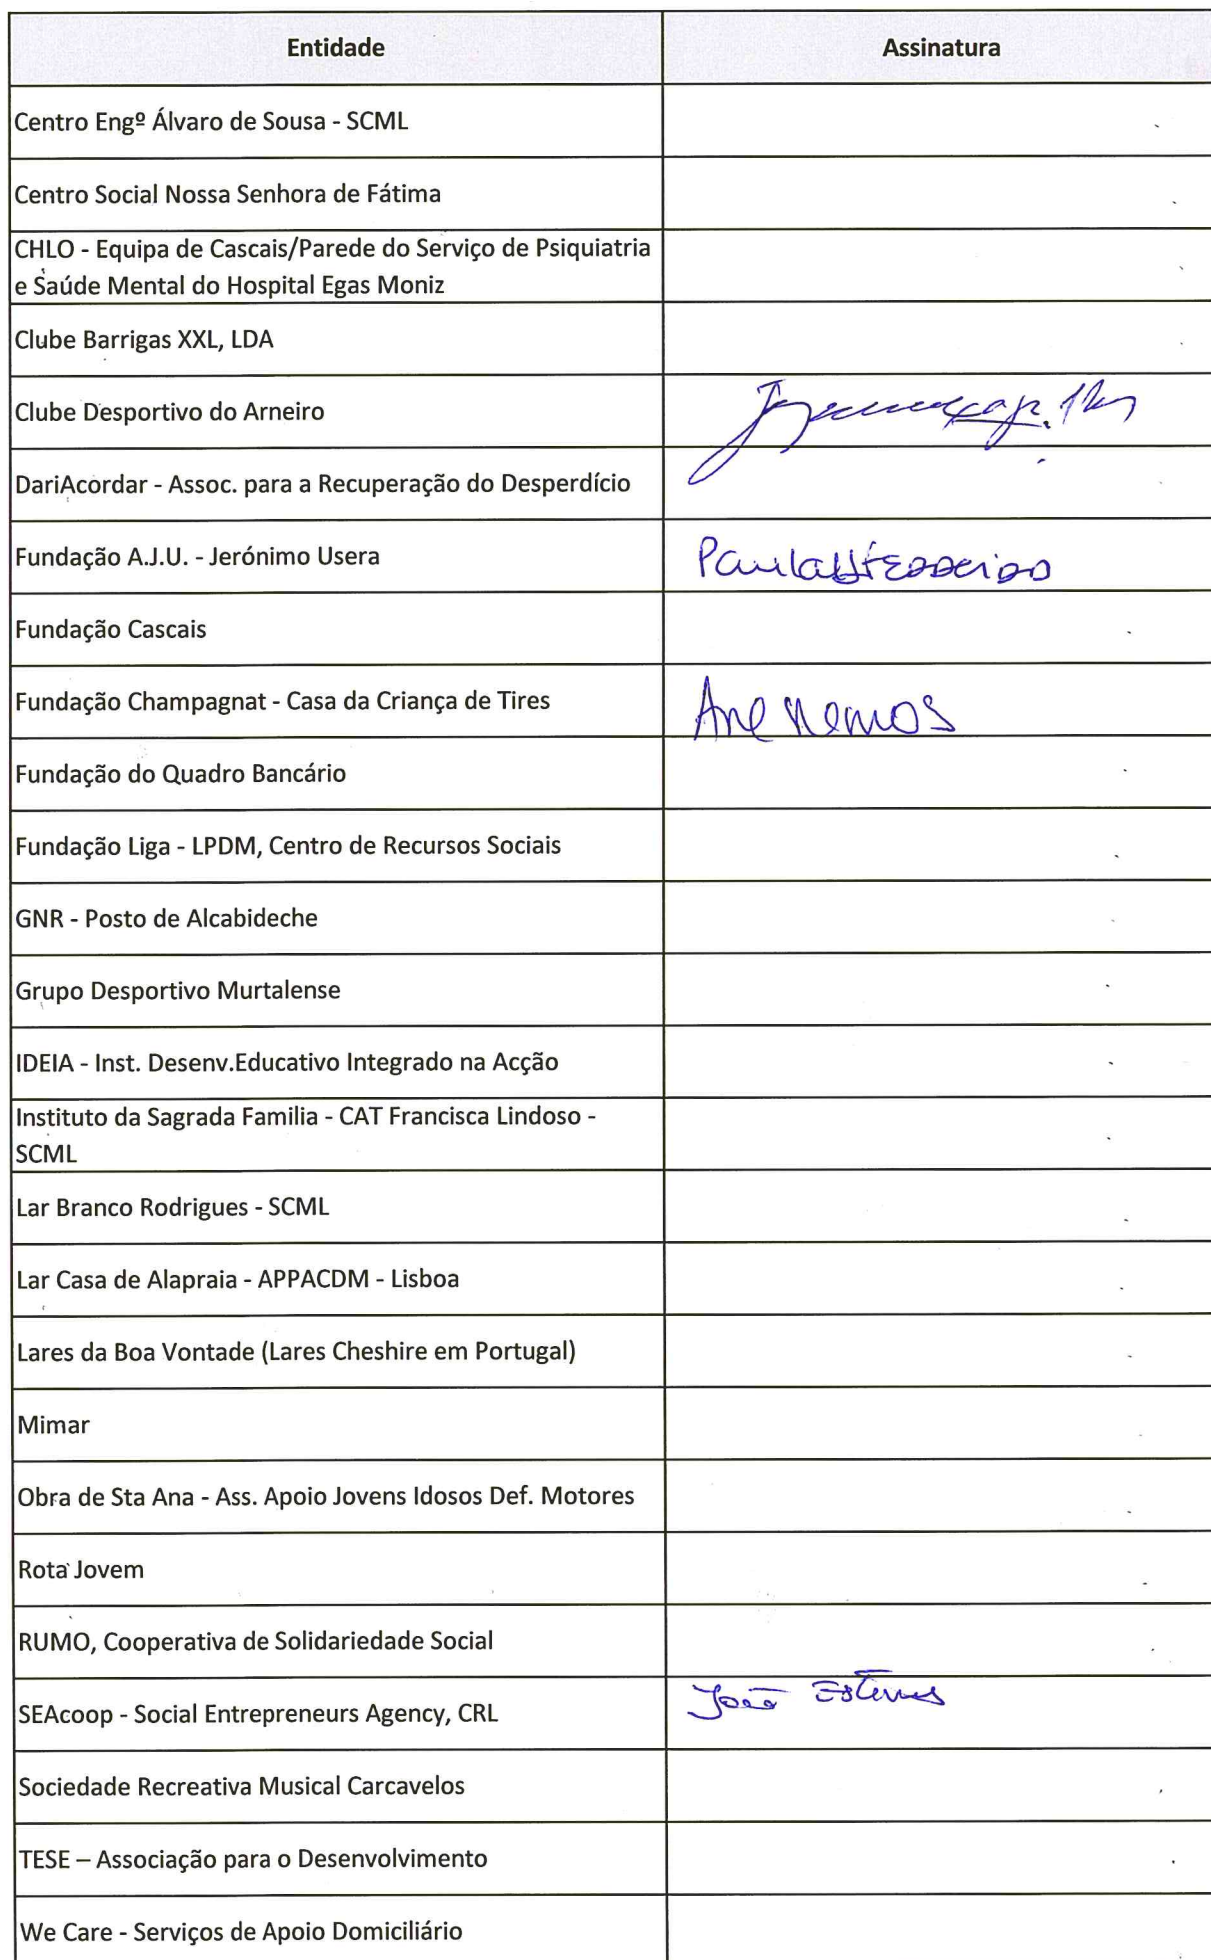 Entidade Assinatura
Centro Engº Álvaro de Sousa - SCML
Centro Social Nossa Senhora de Fátima
CHLO - Equipa de Cascais/Parede do Serviço de Psiquiatria
e Saúde Mental do Hospital Egas Moniz
Clube Barrigas XXL, LDA
Clube Desportivo do Arneiro
DariAcordar - Assoc. para a Recuperação do Desperdício
Fundação A.J.U. - Jerónimo Usera Paula
Fundação Cascais
Fundação Champagnat - Casa da Criança de Tires
Fundação do Quadro Bancário
Fundação Liga - LPDM, Centro de Recursos Sociais
GNR - Posto de Alcabideche
Grupo Desportivo Murtalense
IDEIA - Inst. Desenv.Educativo Integrado na Acção
Instituto da Sagrada Familia - CAT Francisca Lindoso -
SCML
Lar Branco Rodrigues - SCML
Lar Casa de Alapraia - APPACDM - Lisboa
Lares da Boa Vontade (Lares Cheshire em Portugal)
Mimar
Obra de Sta Ana - Ass. Apoio Jovens Idosos Def. Motores
Rota Jovem
RUMO, Cooperativa de Solidariedade Social
SEAcoop - Social Entrepreneurs Agency, CRL João Esteves
Sociedade Recreativa Musical Carcavelos
TESE – Associação para o Desenvolvimento
We Care - Serviços de Apoio Domiciliário